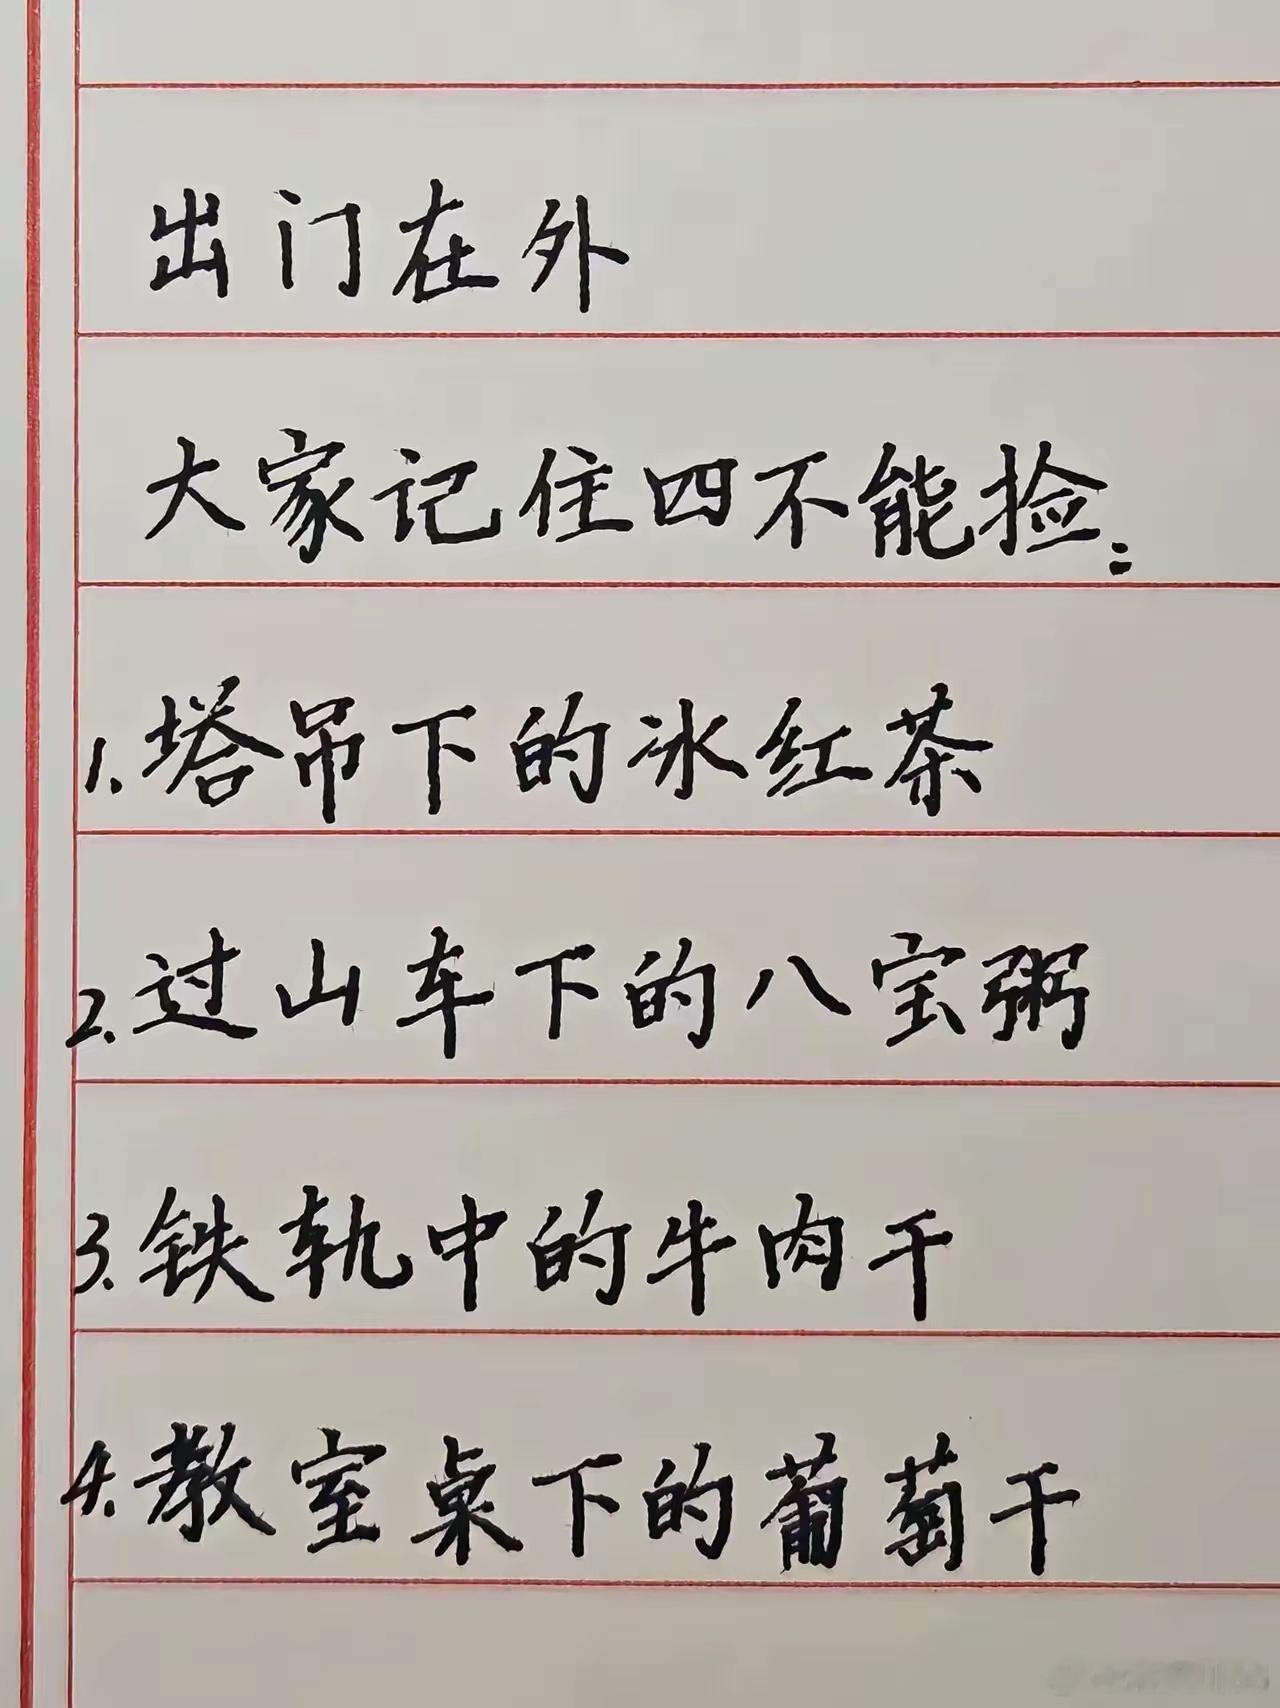 出门在外
大家记住四不能捡:
1.塔吊下的冰红茶
2.过山车下的八宝粥
3.铁轨中的牛肉干
4.教室桌下的葡萄干